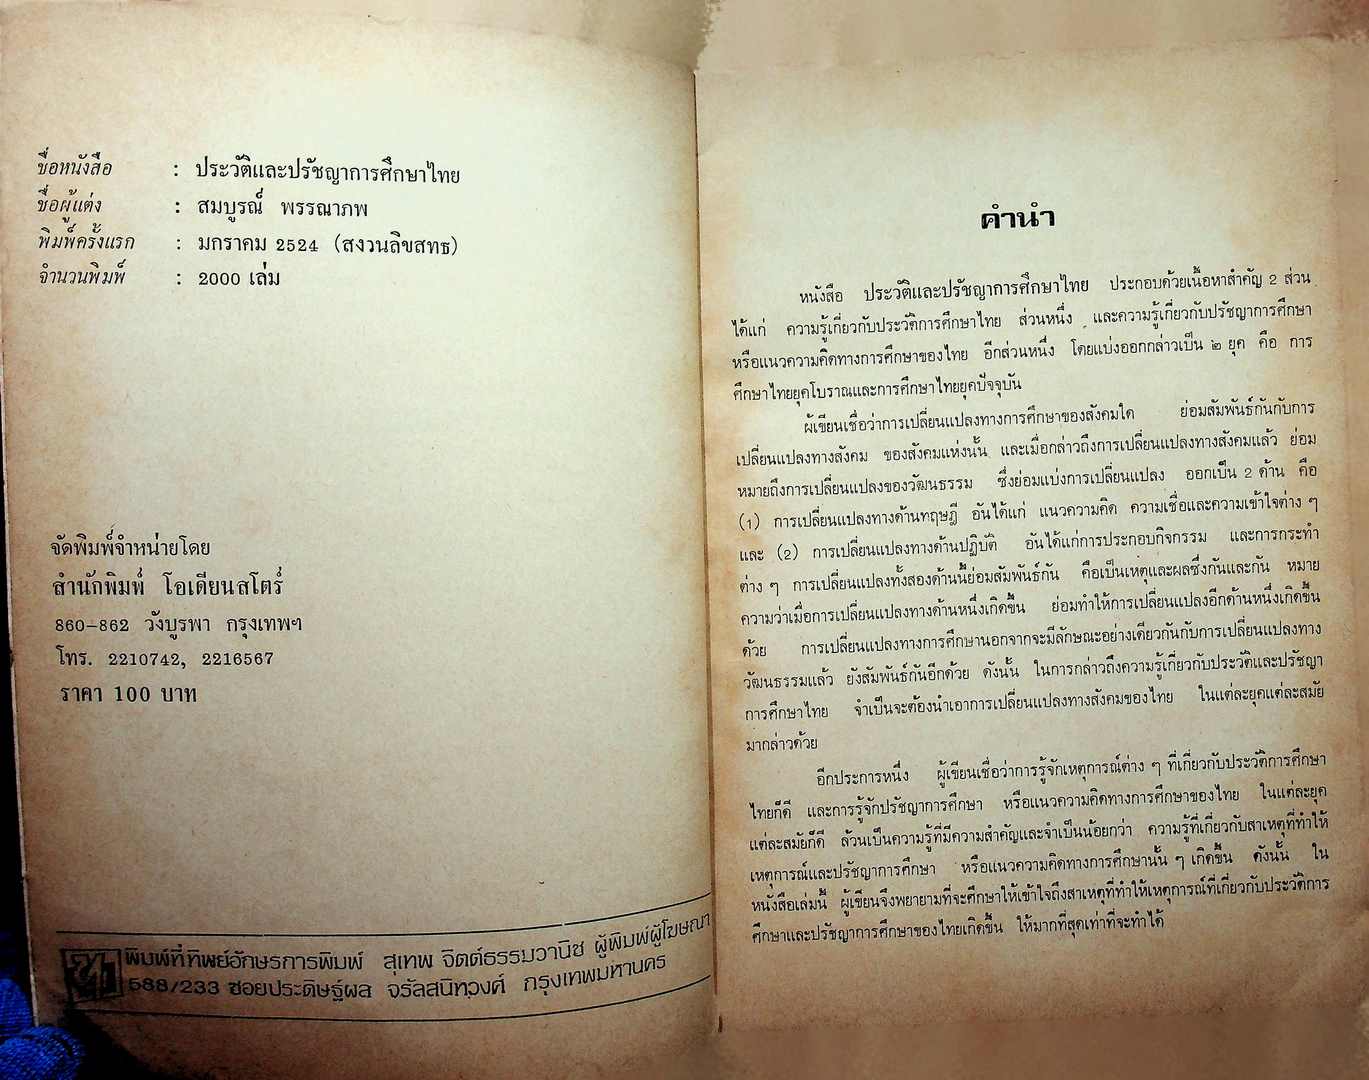 ชื่อหนังสือ : ประวัติและปรัชญาการศึกษาไทย
ชื่อผู้แต่ง : สมบูรณ์ พรรณาภพ
พิมพ์ครั้งแรก : มกราคม 2524 (สงวนลิขสทธ)
จำนวนพิมพ์ : 2000 เล่ม
จัดพิมพ์จำหน่ายโดย
สำนักพิมพ์ โอเดียนสโตร์
860–862 วังบูรพา กรุงเทพฯ
โทร. 2210742, 2216567
ราคา 100 บาท
พิมพ์ที่ทิพย์อักษรการพิมพ์ สุเทพ จิตต์ธรรมวานิช ผู้พิมพ์ผู้โฆษณา
588/233 ซอยประดิษฐ์ผล จรัลสนิทวงศ์ กรุงเทพมหานคร
คำนำ
หนังสือ ประวัติและปรัชญาการศึกษาไทย ประกอบด้วยเนื้อหาสำคัญ 2 ส่วน
ได้แก่ ความรู้เกี่ยวกับประวัติการศึกษาไทย ส่วนหนึ่ง และความรู้เกี่ยวกับปรัชญาการศึกษา
หรือแนวความคิดทางการศึกษาของไทย อีกส่วนหนึ่ง โดยแบ่งออกกล่าวเป็น ๒ ยุค คือ การ
ศึกษาไทยยุคโบราณและการศึกษาไทยยุคปัจจุบัน
ผู้เขียนเชื่อว่าการเปลี่ยนแปลงทางการศึกษาของสังคมใด ย่อมสัมพันธ์กันกับการ
เปลี่ยนแปลงทางสังคม ของสังคมแห่งนั้น และเมื่อกล่าวถึงการเปลี่ยนแปลงทางสังคมแล้ว ย่อม
หมายถึงการเปลี่ยนแปลงของวัฒนธรรม ซึ่งย่อมแบ่งการเปลี่ยนแปลง ออกเป็น 2 ด้าน คือ
(1) การเปลี่ยนแปลงทางด้านทฤษฎี อันได้แก่ แนวความคิด ความเชื่อและความเข้าใจต่าง ๆ
และ (2) การเปลี่ยนแปลงทางด้านปฏิบัติ อันได้แก่การประกอบกิจกรรม และการกระทำ
ต่าง ๆ การเปลี่ยนแปลงทั้งสองด้านนี้ย่อมสัมพันธ์กัน คือเป็นเหตุและผลซึ่งกันและกัน หมาย
ความว่าเมื่อการเปลี่ยนแปลงทางด้านหนึ่งเกิดขึ้น ย่อมทำให้การเปลี่ยนแปลงอีกด้านหนึ่งเกิดขึ้น
ด้วย การเปลี่ยนแปลงทางการศึกษานอกจากจะมีลักษณะอย่างเดียวกันกับการเปลี่ยนแปลงทาง
วัฒนธรรมแล้ว ยังสัมพันธ์กันอีกด้วย ดังนั้น ในการกล่าวถึงความรู้เกี่ยวกับประวัติและปรัชญา
การศึกษาไทย จำเป็นจะต้องนำเอาการเปลี่ยนแปลงทางสังคมของไทย ในแต่ละยุคแต่ละสมัย
มากล่าวด้วย
อีกประการหนึ่ง ผู้เขียนเชื่อว่าการรู้จักเหตุการณ์ต่าง ๆ ที่เกี่ยวกับประวัติการศึกษา
ไทยก็ดี และการรู้จักปรัชญาการศึกษา หรือแนวความคิดทางการศึกษาของไทย ในแต่ละยุค
แต่ละสมัยก็ดี ล้วนเป็นความรู้ที่มีความสำคัญและจำเป็นน้อยกว่า ความรู้ที่เกี่ยวกับสาเหตุที่ทำให้
เหตุการณ์และปรัชญาการศึกษา หรือแนวความคิดทางการศึกษานั้น ๆ เกิดขึ้น ดังนั้น ใน
หนังสือเล่มนี้ ผู้เขียนจึงพยายามที่จะศึกษาให้เข้าใจถึงสาเหตุที่ทำให้เหตุการณ์ที่เกี่ยวกับประวัติการ
ศึกษาและปรัชญาการศึกษาของไทยเกิดขึ้น ให้มากที่สุดเท่าที่จะทำได้